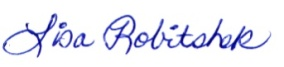 Lisa Robitshek